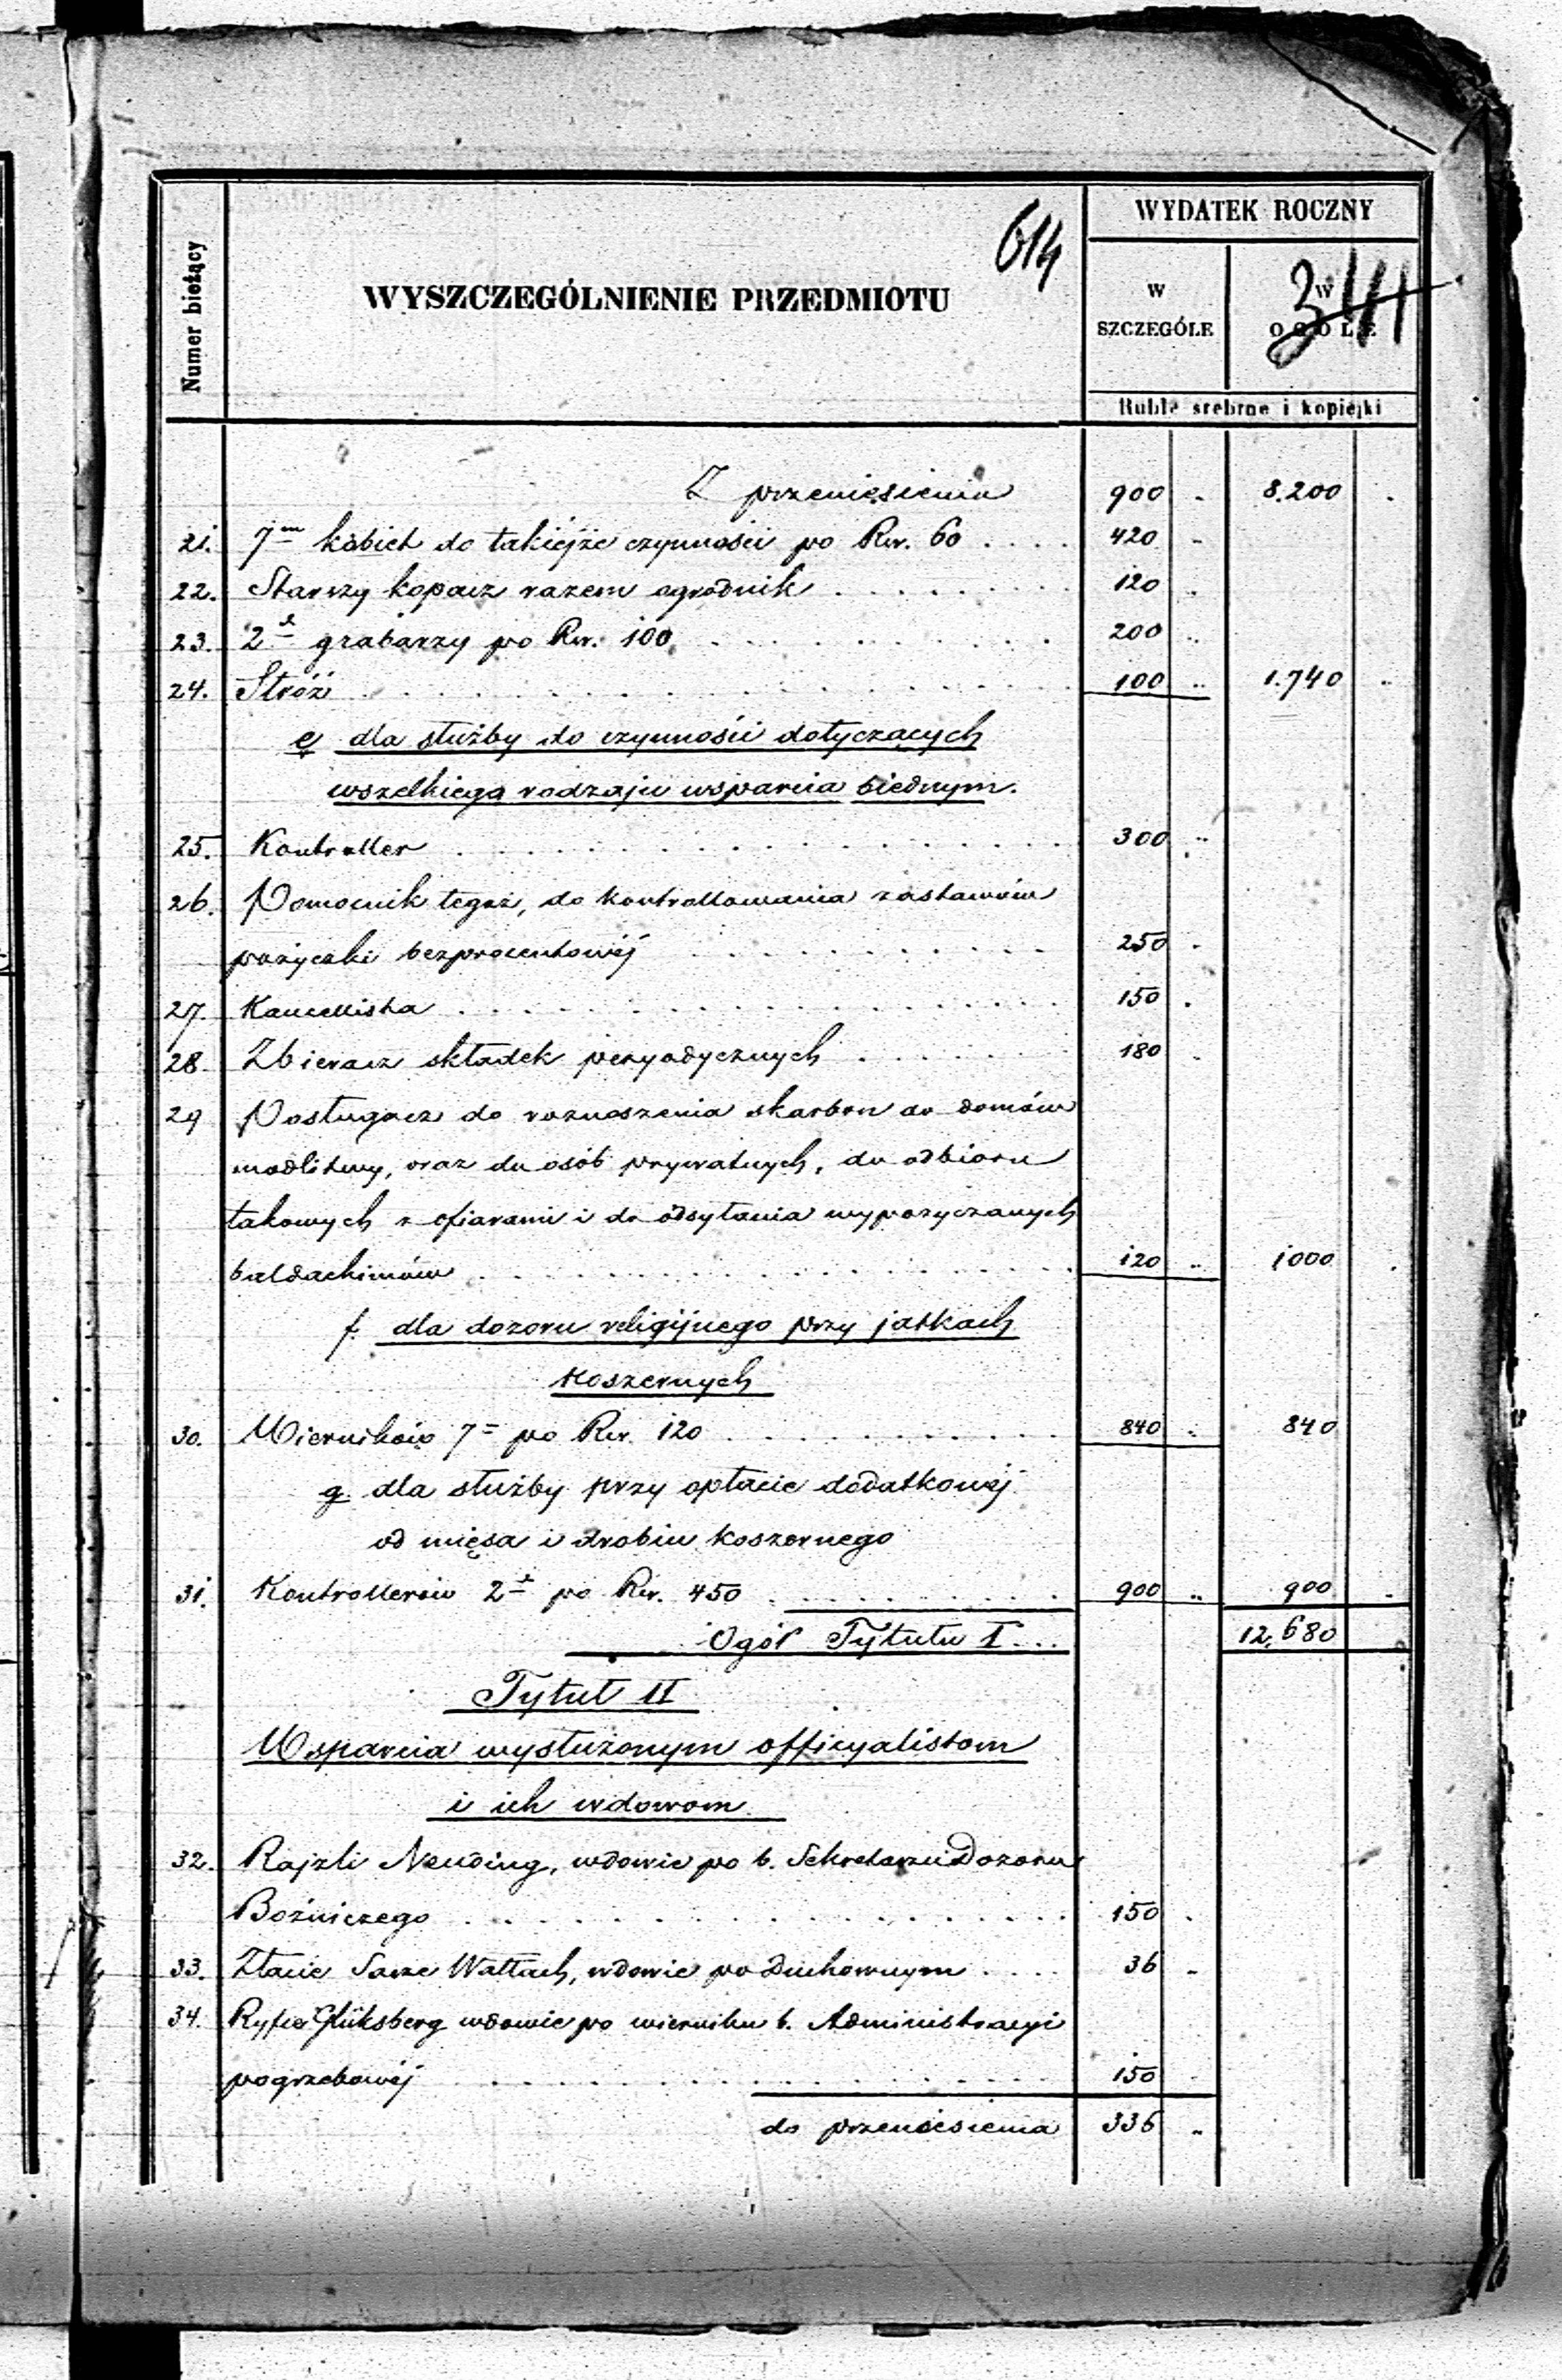 614
WYDATEK ROCZNY
Numer bieżący
WYSZCZEGÓLNIENIE PRZEDMIOTU
W SZCZEGÓLE
W OGÓLE
344
Ruble srebrne i kopiejki
Z przeniesienia 900 " 8.200 "
21. 7m kobiet do takiejże czynności po Rsr. 60 .... 420 "
22. Starszy kopacz razem ogrodnik . . . . 120 "
23. 2ch grabarzy po Rsr. 100 . . . . 200 "
24. Stróż . . . . 100 " 1.740 "
e, dla służby do czynności dotyczących
wszelkiego rodzaju wsparcia biednym.
25. Kontroller . . . . 300 "
26. Pomocnik tegoż, do kontrollowania zastawów
pożyczki bezprocentowéj . . . . 250 "
27. Kancellista . . . . 150 "
28. Zbieracz składek peryodycznych . . . . 180 "
29 Posługacz do roznoszenia skarbon do domów
modlitwy, oraz do osób prywatnych, do odbioru
takowych z ofiarami i do odsyłania wypożyczanych
baldachimów . . . . 120 " 1000 "
f. dla dozoru religijnego przy jatkach
koszernych
30. Wierników 7 po Rsr. 120 . . . . 840 " 840
g. dla służby przy opłacie dodatkowéj
od mięsa i drobiu koszernego
31. Kontrollerów 2ch po Rsr. 450 . . . . 900 " 900 "
Ogół Tytułu I ... 12,680
Tytuł II
Wsparcia wysłużonym officyalistom
i ich wdowom
32. Rajzli Neuding, wdowie po b. Sekretarzu Dozoru
Bożniczego . . . . 150 "
33. Złacie Sarze Wallach, wdowie po Duchownym .... 36 "
34. Ryfce Glüksberg wdowie po wierniku b. Administracyi
pogrzebowéj . . . . 150 "
do przeniesienia 336 "